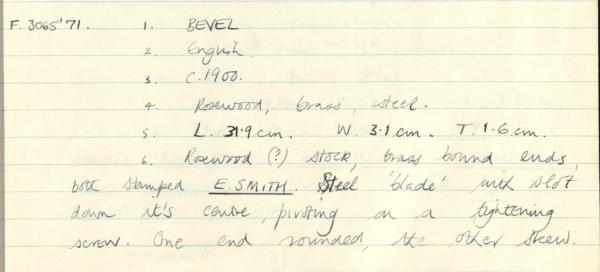 F. 3065'71. 1. BEVEL
2. English.
3. C.1900.
4. Rosewood, brass, steel.
5. L. 31.9cm. W. 3.1cm. T. 1.6cm.
6. Rosewood (?) stock, brass bound ends,
both stamped E.SMITH. Steel 'blade' with slot
down it's centre, pivoting on a tightening
screw. One end rounded, the other skew.